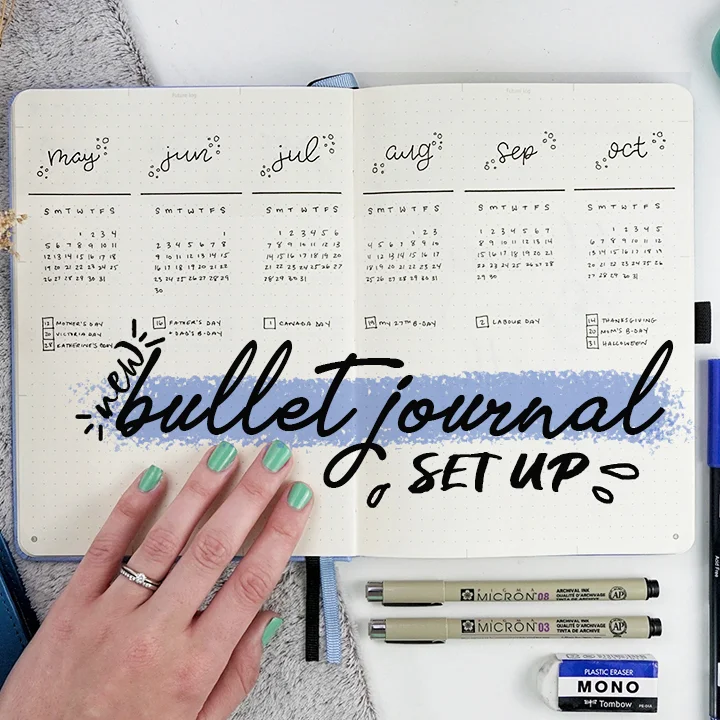 Future log
Future log
may jun jul aug sep oct
S M T W T F S
1 2 3 4
5 6 7 8 9 10 11
12 13 14 15 16 17 18
19 20 21 22 23 24 25
26 27 28 29 30 31
S M T W T F S
1
2 3 4 5 6 7 8
9 10 11 12 13 14 15
16 17 18 19 20 21 22
23 24 25 26 27 28 29
30
S M T W T F S
1 2 3 4 5 6
7 8 9 10 11 12 13
14 15 16 17 18 19 20
21 22 23 24 25 26 27
28 29 30 31
S M T W T F S
1 2 3
4 5 6 7 8 9 10
11 12 13 14 15 16 17
18 19 20 21 22 23 24
25 26 27 28 29 30 31
S M T W T F S
1 2 3 4 5 6 7
8 9 10 11 12 13 14
15 16 17 18 19 20 21
22 23 24 25 26 27 28
29 30
S M T W T F S
1 2 3 4 5
6 7 8 9 10 11 12
13 14 15 16 17 18 19
20 21 22 23 24 25 26
27 28 29 30 31
12 MOTHER'S DAY
20 VICTORIA DAY
28 KATHERINE'S B-DAY
16 FATHER'S DAY
+ DAD'S B-DAY
1 CANADA DAY
19 MY 27TH B-DAY
2 LABOUR DAY
14 THANKSGIVING
20 MOM'S B-DAY
31 HALLOWEEN
new
bullet journal
SET UP
MICRON 08 ARCHIVAL INK
QUALITÉ D'ARCHIVAGE
TINTA DE ARCHIVE
AP
MICRON 03 ARCHIVAL INK
QUALITÉ D'ARCHIVAGE
TINTA DE ARCHIVE
AP
PLASTIC ERASER
MONO
Tombow PE-01A